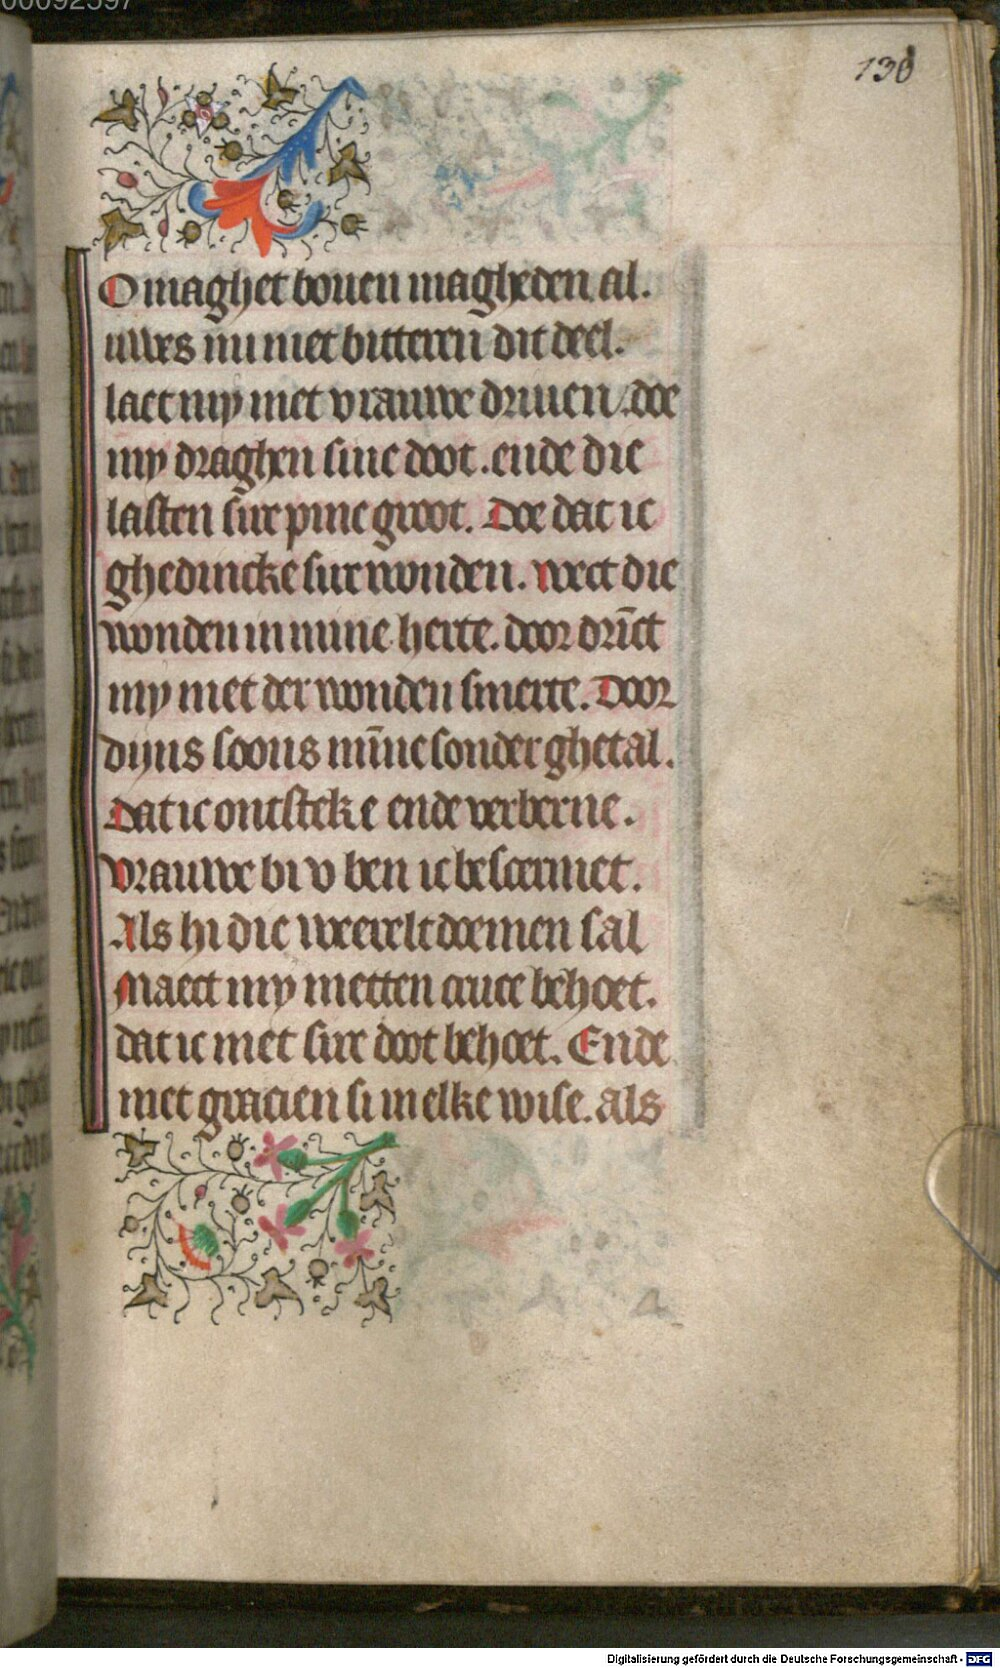 130
O maghet bouen magheden al.
uwes nu niet bitteren dit deel.
laet my met vrauwe driuen. doe
my draghen sine doot. ende die
lasten sire pine groot. Doe dat ic
ghedincke sire wonden. wect die
wonden in mine herte. door drīct
my met der wonden smerte. Door
dijns soons mīne sonder ghetal.
Dat ic ontsteke ende verberne.
Vrauwe bi v ben ic bescermet.
Als hi die weerelt doemen sal
Maect my metten cruce behoet.
dat ic met sire doot behoet. Ende
met gracien si in elke wise. als
Digitalisierung gefördert durch die Deutsche Forschungsgemeinschaft - DFG